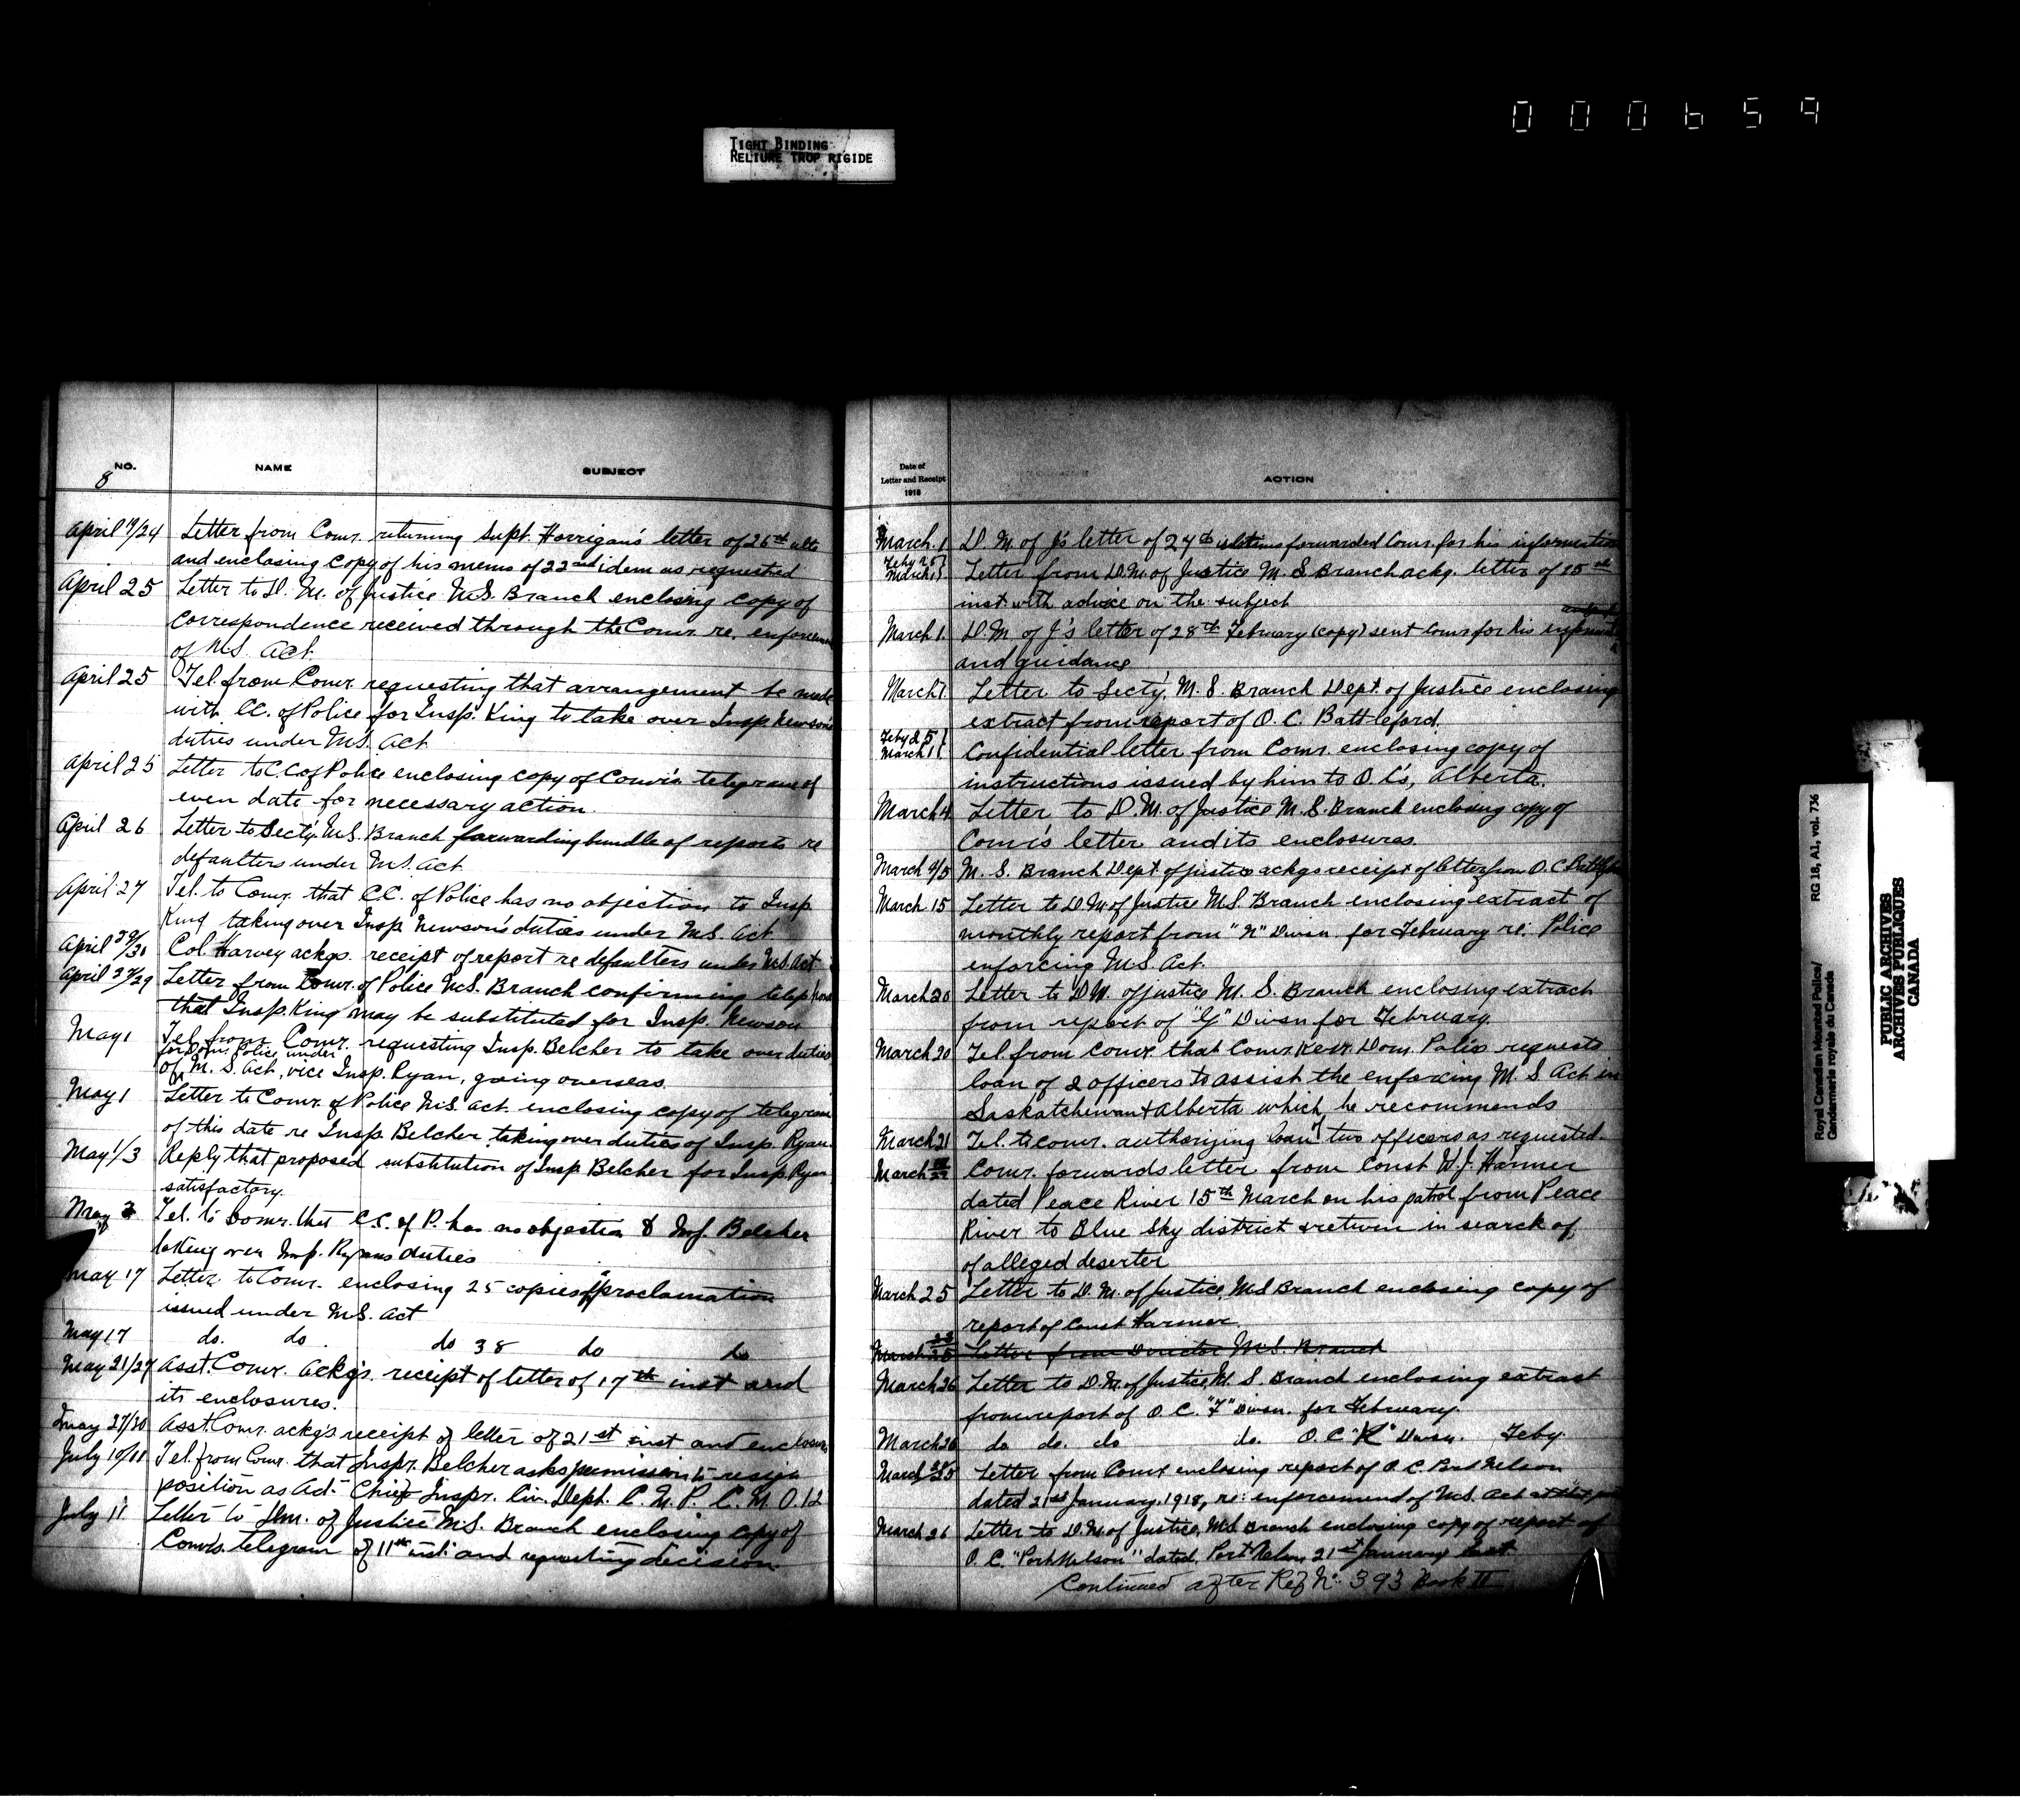 000659
TIGHT BINDING
RELIURE TROP RIGIDE
NO.
8
NAME
SUBJECT
April 9/24 Letter from Comr. returning Supt. Horrigan's letter of 26th ulto
and enclosing copy of his memo of 22nd idem as requested
April 25 Letter to D. M. of Justice M.S. Branch enclosing copy of
correspondence received through the Comr. re. enforcement
of M.S. Act.
April 25 Tel. from Comr. requesting that arrangement be made
with C.C. of Police for Insp. King to take over Insp. Newson's
duties under M.S. Act
April 25 Letter to C.C. of Police enclosing copy of Comr's telegram of
even date for necessary action.
April 26 Letter to Secty. M.S. Branch forwarding bundle of reports re
defaulters under M.S. Act
April 27 Tel. to Comr. that C.C. of Police has no objection to Insp
King taking over Insp. Newson's duties under M.S. Act
April 29/30 Col. Harvey ackgs. receipt of report re defaulters under M.S. Act
April 27/29 Letter from Comr. of Police M.S. Branch confirming telephone
that Insp. King may be substituted for Insp. Newson
May 1 Tel. from Comr. requesting Insp. Belcher to take over duties
for Dom. Police under
of M. S. Act, vice Insp. Ryan, going overseas.
May 1 Letter to Comr. of Police M.S. Act. enclosing copy of telegram
of this date re Insp. Belcher taking over duties of Insp. Ryan.
May 1/3 Reply that proposed substitution of Insp. Belcher for Insp. Ryan
satisfactory.
May 3 Tel. to Comr. that C.C. of P. has no objection to Insp. Belcher
taking over Insp. Ryans duties
May 17 Letter to Comr. enclosing 25 copies of proclamation
issued under M.S. Act
May 17 do. do. do 38 do do
May 21/27 Asst. Comr. ackgs. receipt of letter of 17th inst and
its enclosures.
May 27/30 Asst. Comr. ackgs receipt of letter of 21st inst and enclosures
July 10/11 Tel. from Comr. that Inspr. Belcher asks permission to resign
position as Act- Chief Inspr. Civ. Dept. C. M. P. C. M. O. 12
July 11 Letter to D.M. of Justice M.S. Branch enclosing copy of
Comr's. telegram of 11th inst and requesting decision.
Date of
Letter and Receipt
1918
ACTION
March. 1 D. M. of J's letter of 27th forwarded Comr. for his information
Feby 25
March 1 Letter from D.M. of Justice M. S. Branch ackg. letter of 15th
inst. with advice on the subject
March 1. D.M. of J's letter of 28th February (copy) sent Comr for his
and guidance
March 1. Letter to Secty. M. S. Branch Dept. of Justice enclosing
extract from report of O. C. Battleford.
Feby 25
March 1 Confidential letter from Comr. enclosing copy of
instructions issued by him to O. C's, Alberta.
March 4 Letter to D. M. of Justice M. S. Branch enclosing copy of
Comr's letter and its enclosures.
March 4/5 M. S. Branch Dept of Justice ackgs receipt of letter from O. C. Battleford
March 15 Letter to D.M. of Justice M.S. Branch enclosing extract of
monthly report from "N" Divsn. for February re: Police
enforcing M.S. Act.
March 20 Letter to D.M. of Justice M. S. Branch enclosing extract
from report of "G" Divsn for February.
March 20 Tel. from Comr. that Comr. Dom. Police requests
loan of 2 officers to assist the enforcing M. S. Act in
Saskatchewan & Alberta which he recommends
March 21 Tel. to Comr. authorizing loan of two officers as requested.
March Comr. forwards letter from Const W. J. Harmer
dated Peace River 15th March on his patrol from Peace
River to Blue Sky district & return in search of,
of alleged deserter
March 25 Letter to D. M. of Justice, M.S Branch enclosing copy of
report of Const Harmer.
March 23/25 Letter from Director M.S. Branch
March 26 Letter to D. M. of Justice, M. S. Branch enclosing extract
from report of O. C. "F" Divsn. for February.
March 26 do do. do do. O. C "K" Divsn. Feby.
March Letter from Comr enclosing report of O. C. Port Nelson
dated 21st January. 1918, re: enforcement of M.S. Act at that
March 26 Letter to D. M. of Justice, M.S Branch enclosing copy of report of
O. C. "Port Nelson" dated, Port Nelson 21st January
Continued after Ref No. 393 Book II
RG 18, A1, vol. 736
Royal Canadian Mounted Police/
Gendarmerie royale du Canada
PUBLIC ARCHIVES
ARCHIVES PUBLIQUES
CANADA